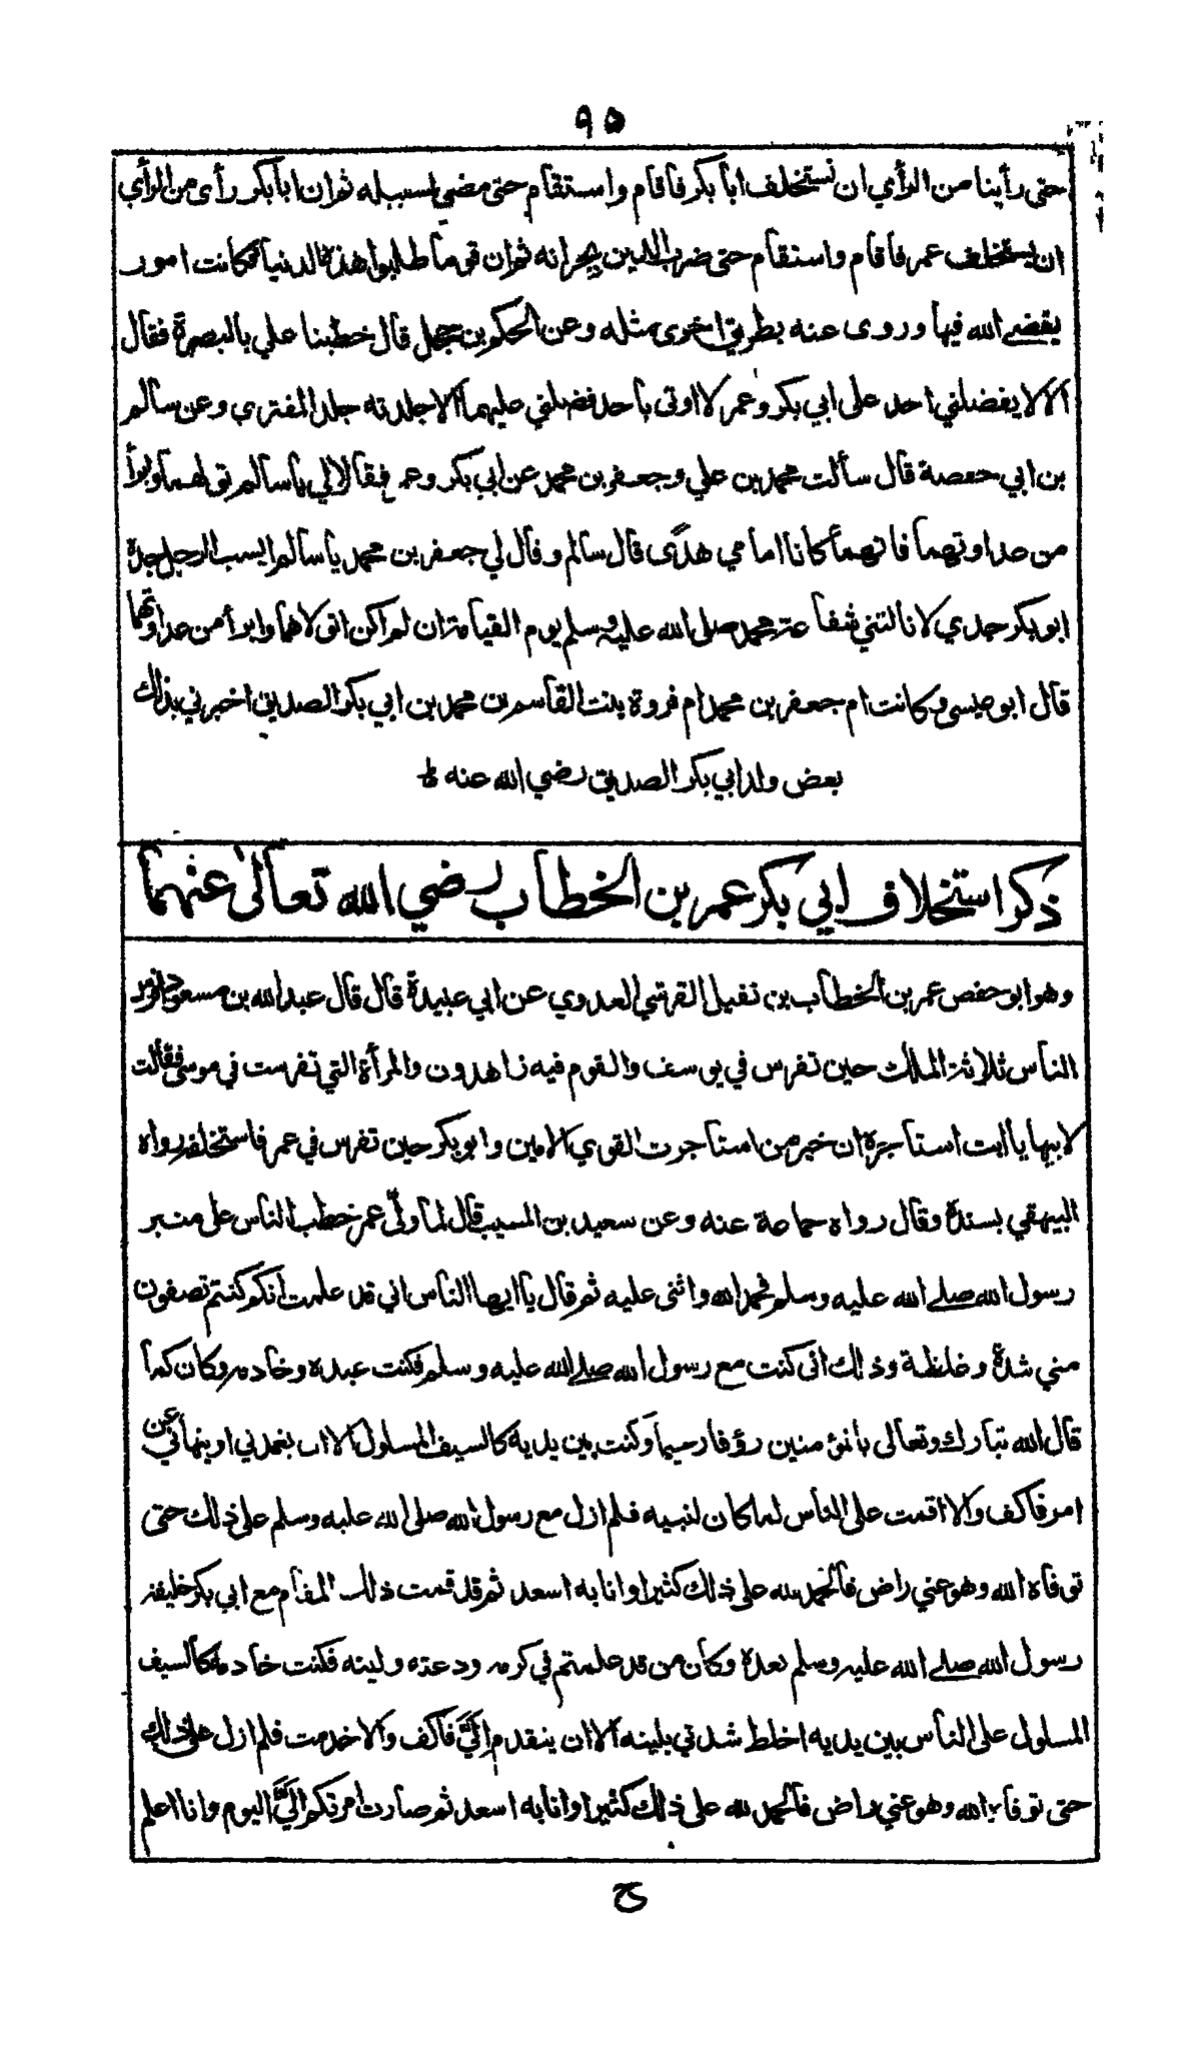 ٩٥
حتى رأينا من الرأي ان نستخلف ابا بكر فاقام واستقام حتى مضى لسبيله ثم ان ابا بكر رأى من الرأي
ان يستخلف عمر فاقام واستقام حتى ضرب الدين بجرانه ثم ان قوما طلبوا هذه الدنيا فكانت امور
يقضے الله فيها وروى عنه بطريق اخرى مثله وعن الحكم بن جحل قال خطبنا علي بالبصرة فقال
الا لا يفضلني احد على ابي بكر وعمر لا اوتى باحد فضلني عليهما الا جلدته جلد المفتري وعن سالم
بن ابي حفصة قال سألت محمد بن علي وجعفر بن محمد عن ابي بكر وعمر فقالا لي يا سالم تولهما وابرأ
من عداوتهما فانهما كانا امامي هدًى قال سالم وقال لي جعفر بن محمد يا سالم ايسب الرجل جده
ابو بكر جدي لا نالتني شفاعة محمد صلى الله عليه وسلم يوم القيامة ان لم اكن اتولاهما وابرأ من عداوتهما
قال ابو عيسى وكانت ام جعفر بن محمد ام فروة بنت القاسم بن محمد بن ابي بكر الصديق اخبرني بذلك
بعض ولد ابي بكر الصديق رضي الله عنه
ذكر استخلاف ابي بكر عمر بن الخطاب رضي الله تعالى عنهما
وهو ابو حفص عمر بن الخطاب بن نفيل القرشي العدوي عن ابي عبيدة قال قال عبد الله بن مسعود افرس
الناس ثلاثة الملك حين تفرس في يوسف والقوم فيه زاهدون والمرأة التي تفرست في موسى فقالت
لابيها يا ابت استاجره ان خير من استاجرت القوي الامين وابو بكر حين تفرس في عمر فاستخلفه رواه
البيهقي بسنده وقال رواه جماعة عنه وعن سعيد بن المسيب قال لما ولّي عمر خطب الناس على منبر
رسول الله صلے الله عليه وسلم فحمد الله واثنى عليه ثم قال يا ايها الناس اني قد علمت انكم كنتم تصفون
مني شدة وغلظة وذلك انى كنت مع رسول الله صلے الله عليه وسلم فكنت عبده وخادمه وكان كما
قال الله تبارك وتعالى بالمؤمنين رؤفا رحيما وكنت بين يديه كالسيف المسلول الا ان يغمدني او ينهاني عن
امر فاكف والا اقدمت على الناس لما كان لنبيه فلم ازل مع رسول الله صلى الله عليه وسلم على ذلك حتى
توفاه الله وهو عني راض فالحمد لله على ذلك كثيرا وانا به اسعد ثم قد قمت ذلك المقام مع ابي بكر خليفة
رسول الله صلے الله عليه وسلم بعده وكان من قد علمتم في كرمه ودعته ولينه فكنت خادمه كالسيف
المسلول على الناس بين يديه اخلط شدتي بلينه الا ان يتقدم اليَّ فاكف والا خدمت فلم ازل على ذلك
حتى توفاه الله وهو عني راض فالحمد لله على ذلك كثيرا وانا به اسعد ثم صارت امرتكم اليَّ اليوم وانا اعلم
ح